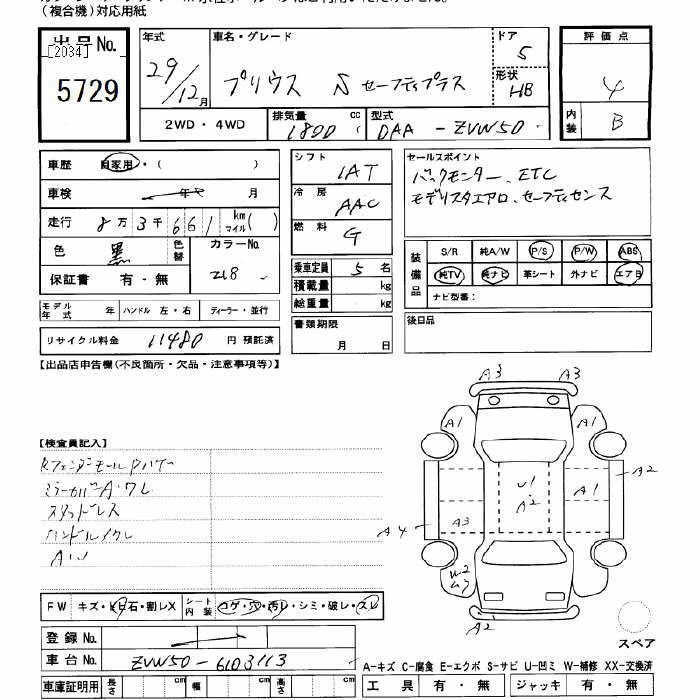 (複合機)対応用紙
出品No. [2034] 5729
年式 29/12月
車名・グレード プリウス S セーフティプラス
ドア 5
形状 HB
評価点 4
内装 B
2WD・4WD
排気量 1800 cc
型式 DAA-ZVW50
車歴 自家用・( )
車検 年 月
走行 8万3千661 km マイル( )
色 黒 色替
カラーNo. 218
保証書 有・無
シフト IAT
冷房 AAC
燃料 G
乗車定員 5名
積載量 kg
総重量 kg
書類期限 月 日
セールスポイント
バックモニター、ETC
モデリスタエアロ、セーフティセンス
装備品 S/R 純A/W P/S P/W ABS
純TV 純ナビ 革シート 外ナビ エアB
ナビ型番:
後日品
モデル年式 年 ハンドル 左・右 ディーラー・並行
リサイクル料金 11480 円 預託済
【出品店申告欄(不良箇所・欠品・注意事項等)】
【検査員記入】
スタッドレス
ハンドルスレ
A3 A3
A1 A1
U1
A2
A1 A2
A3 A4
W2
A2
スペア
FW キズ・ヒビ石・割レX シート内装 コゲ・穴・汚レ・シミ・破レ・スレ
登録No.
車台No. ZVW50-6103113
車庫証明用 長さ cm 幅 cm 高さ cm
A-キズ C-腐食 E-エクボ S-サビ U-凹ミ W-補修 XX-交換済
工具 有・無 ジャッキ 有・無